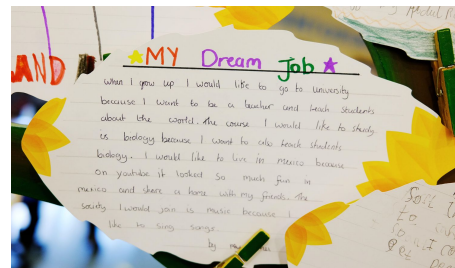 MY Dream Job
AND
when I grow up I would like to go to university
because I want to be a teacher and teach students
about the world. The course I would like to study
is biology because I want to also teach students
biology. I would like to live in mexico because
on youtube it looked so much fun in
mexico and share a home with my friends. The
society I would join is music because I
like to sing songs
by
Soil